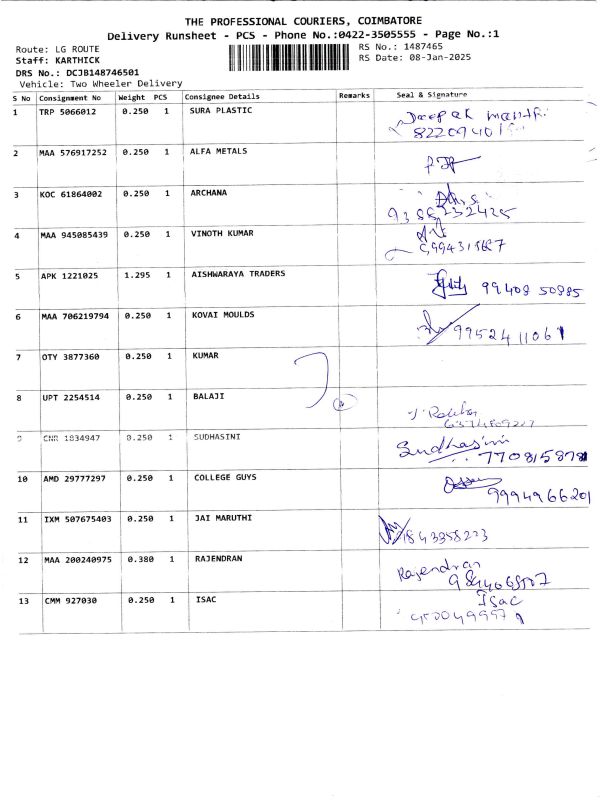 THE PROFESSIONAL COURIERS, COIMBATORE
Delivery Runsheet - PCS - Phone No.:0422-3505555 - Page No.:1
Route: LG ROUTE
RS No.: 1487465
Staff: KARTHICK
RS Date: 08-Jan-2025
DRS No.: DCJB148746501
Vehicle: Two Wheeler Delivery
S No Consignment No Weight PCS Consignee Details Remarks Seal & Signature
1 TRP 5066012 0.250 1 SURA PLASTIC
Deepak
2 MAA 576917252 0.250 1 ALFA METALS
3 KOC 61864002 0.250 1 ARCHANA
4 MAA 945085439 0.250 1 VINOTH KUMAR
5 APK 1221025 1.295 1 AISHWARAYA TRADERS
99408 50885
6 MAA 706219794 0.250 1 KOVAI MOULDS
9952411061
7 OTY 3877360 0.250 1 KUMAR
8 UPT 2254514 0.250 1 BALAJI
9 CNR 1834947 0.250 1 SUDHASINI
Sudhasini
10 AMD 29777297 0.250 1 COLLEGE GUYS
9994966201
11 IXM 507675403 0.250 1 JAI MARUTHI
12 MAA 200240975 0.380 1 RAJENDRAN
Rajendran
13 CMM 927030 0.250 1 ISAC
Isac